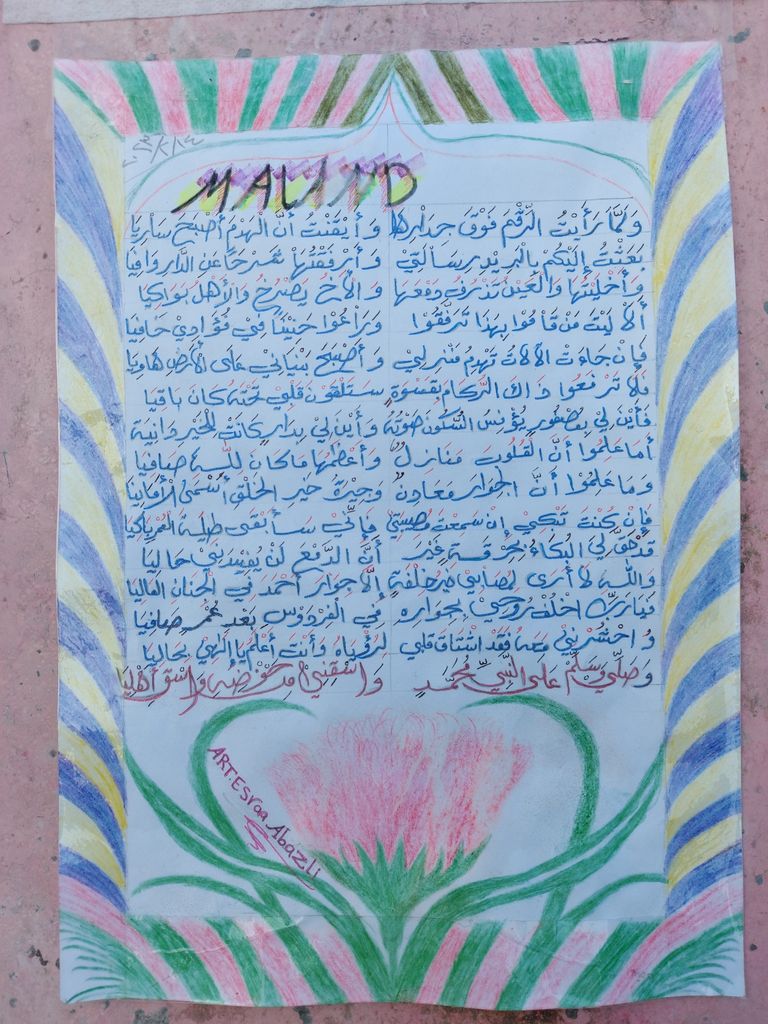 MALAND
وَلَمَّا رَأَيْتُ الرَّقْمَ فَوْقَ جِدَارِهَا وَأَيْقَنْتُ أَنَّ الْهَدْمَ أَصْبَحَ سَارِيَا
بَعَثْتُ إِلَيْكُمْ بِالْبَرِيدِ رِسَالَتِي وَأَرْفَقْتُهَا شَرْحًا عَنِ الدَّارِ وَافِيَا
وَأَخْلَيْتُهَا وَالْعَيْنُ تَذْرُفُ دَمْعَهَا وَالْأَخُ يَصْرُخُ وَالْأَهْلُ بَوَاكِيَا
أَلَا لَيْتَ مَنْ قَامُوا بِهَذَا تَرَفَّقُوا وَرَاعُوا حَنِينًا فِي فُؤَادِي خَافِيَا
فَإِنْ جَاءَتْ الْآلَاتُ تَهْدِمُ مَنْزِلِي وَأَصْبَحَ بُنْيَانِي عَلَى الْأَرْضِ هَاوِيَا
فَلَا تَرْفَعُوا ذَاكَ الرُّكَامَ بِقَسْوَةٍ سَتَلْقَوْنَ قَلْبِي تَحْتَهُ كَانَ بَاقِيَا
فَأَيْنَ لِي يُؤْنِسُ السُّكُونَ صَوْتُهُ وَأَيْنَ لِي بِدَارٍ كَانَتْ لِلْخَيْرِ دَانِيَةً
أَمَا عَلِمُوا أَنَّ الْقُلُوبَ مَنَازِلٌ وَأَعْظَمُهَا مَا كَانَ لِلَّهِ صَافِيَا
وَمَا عَلِمُوا أَنَّ الْجِوَارَ مَعَادِنٌ وَجِيرَةُ خَيْرِ الْخَلْقِ أَسْمَى الْأَمَانِيَا
فَإِنْ كُنْتَ تَبْكِي إِنْ سَمِعْتَ مُصِيبَتِي فَإِنِّي سَأَبْقَى طِيلَةَ الْعُمْرِ بَاكِيَا
قَدْ حَقَّ لِي الْبُكَاءُ بِحُرْقَةٍ غَيْرَ أَنَّ الدَّمْعَ لَنْ يُفِيدَنِي حَالِيَا
وَاللَّهِ لَا أَرَى لِمُصَابِي خَيْرَ خَلَفَةٍ إِلَّا جِوَارَ أَحْمَدَ فِي الْجِنَانِ الْعَالِيَا
فَيَا رَبِّ اخْلُفْ رُوحِي بِجِوَارِهِ فِي الْفِرْدَوْسِ بَعْدَ عُمْرٍ صَافِيَا
وَاحْشُرْنِي مَعَهُ فَقَدْ اشْتَاقَ قَلْبِي لِرُؤْيَاهُ وَأَنْتَ أَعْلَمُ يَا إِلَهِي بِحَالِيَا
وَصَلِّي وَسَلِّمْ عَلَى النَّبِيِّ مُحَمَّدٍ وَاسْقِنِي مِنْ حَوْضِهِ وَاسْقِ أَهْلِيَا
ART.Esraa Abazli